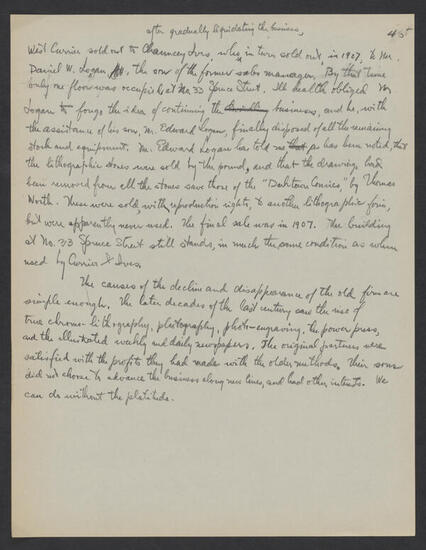 after gradually liquidating the business,
45
West Currier sold out to Chauncey Ives, who in turn sold out in 1907, to Mr.
Daniel W. Logan, Jr., the son of the former sales manager. By that time
only one floor was occupied at No. 33 Spruce Street. Ill health obliged Mr.
Logan to forego the idea of continuing the dwindling business, and he, with
the assistance of his son, Mr. Edward Logan, finally disposed of all the remaining
stock and equipment. Mr. Edward Logan has told me that, as has been noted, that
the lithographic stones were sold by the pound, and that the drawings had
been removed from all the stones save those of the "Darktown Comics," by Thomas
Worth. These were sold with reproduction rights, to another lithographic firm,
but were apparently never used. The final sale was in 1907. The building
at No. 33 Spruce Street still stands, in much the same condition as when
used by Currier & Ives.
The causes of the decline and disappearance of the old firm are
simple enough. The later decades of the last century saw the use of
true chromo-lithography, photography, photo-engraving, the power press,
and the illustrated weekly and daily newspapers. The original partners were
satisfied with the profits they had made with the older methods. Their sons
did not choose to advance the business along new lines, and had other interests. We
can do without the platitude.